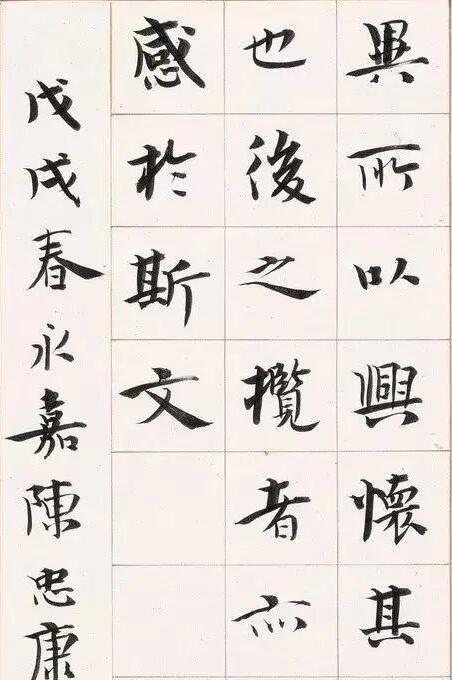 異所以興懷其
也後之攬者亦
感於斯文
戊戌春永嘉陳忠康